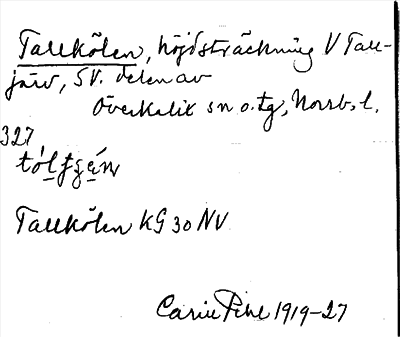 Tallkölen, höjdsträckning V Tall-
järv, SV. delen av
Överkalix sn o. tg, Norrb. l.
327
Tallkölen KG 30 NV
Carin Pihl 1919-27